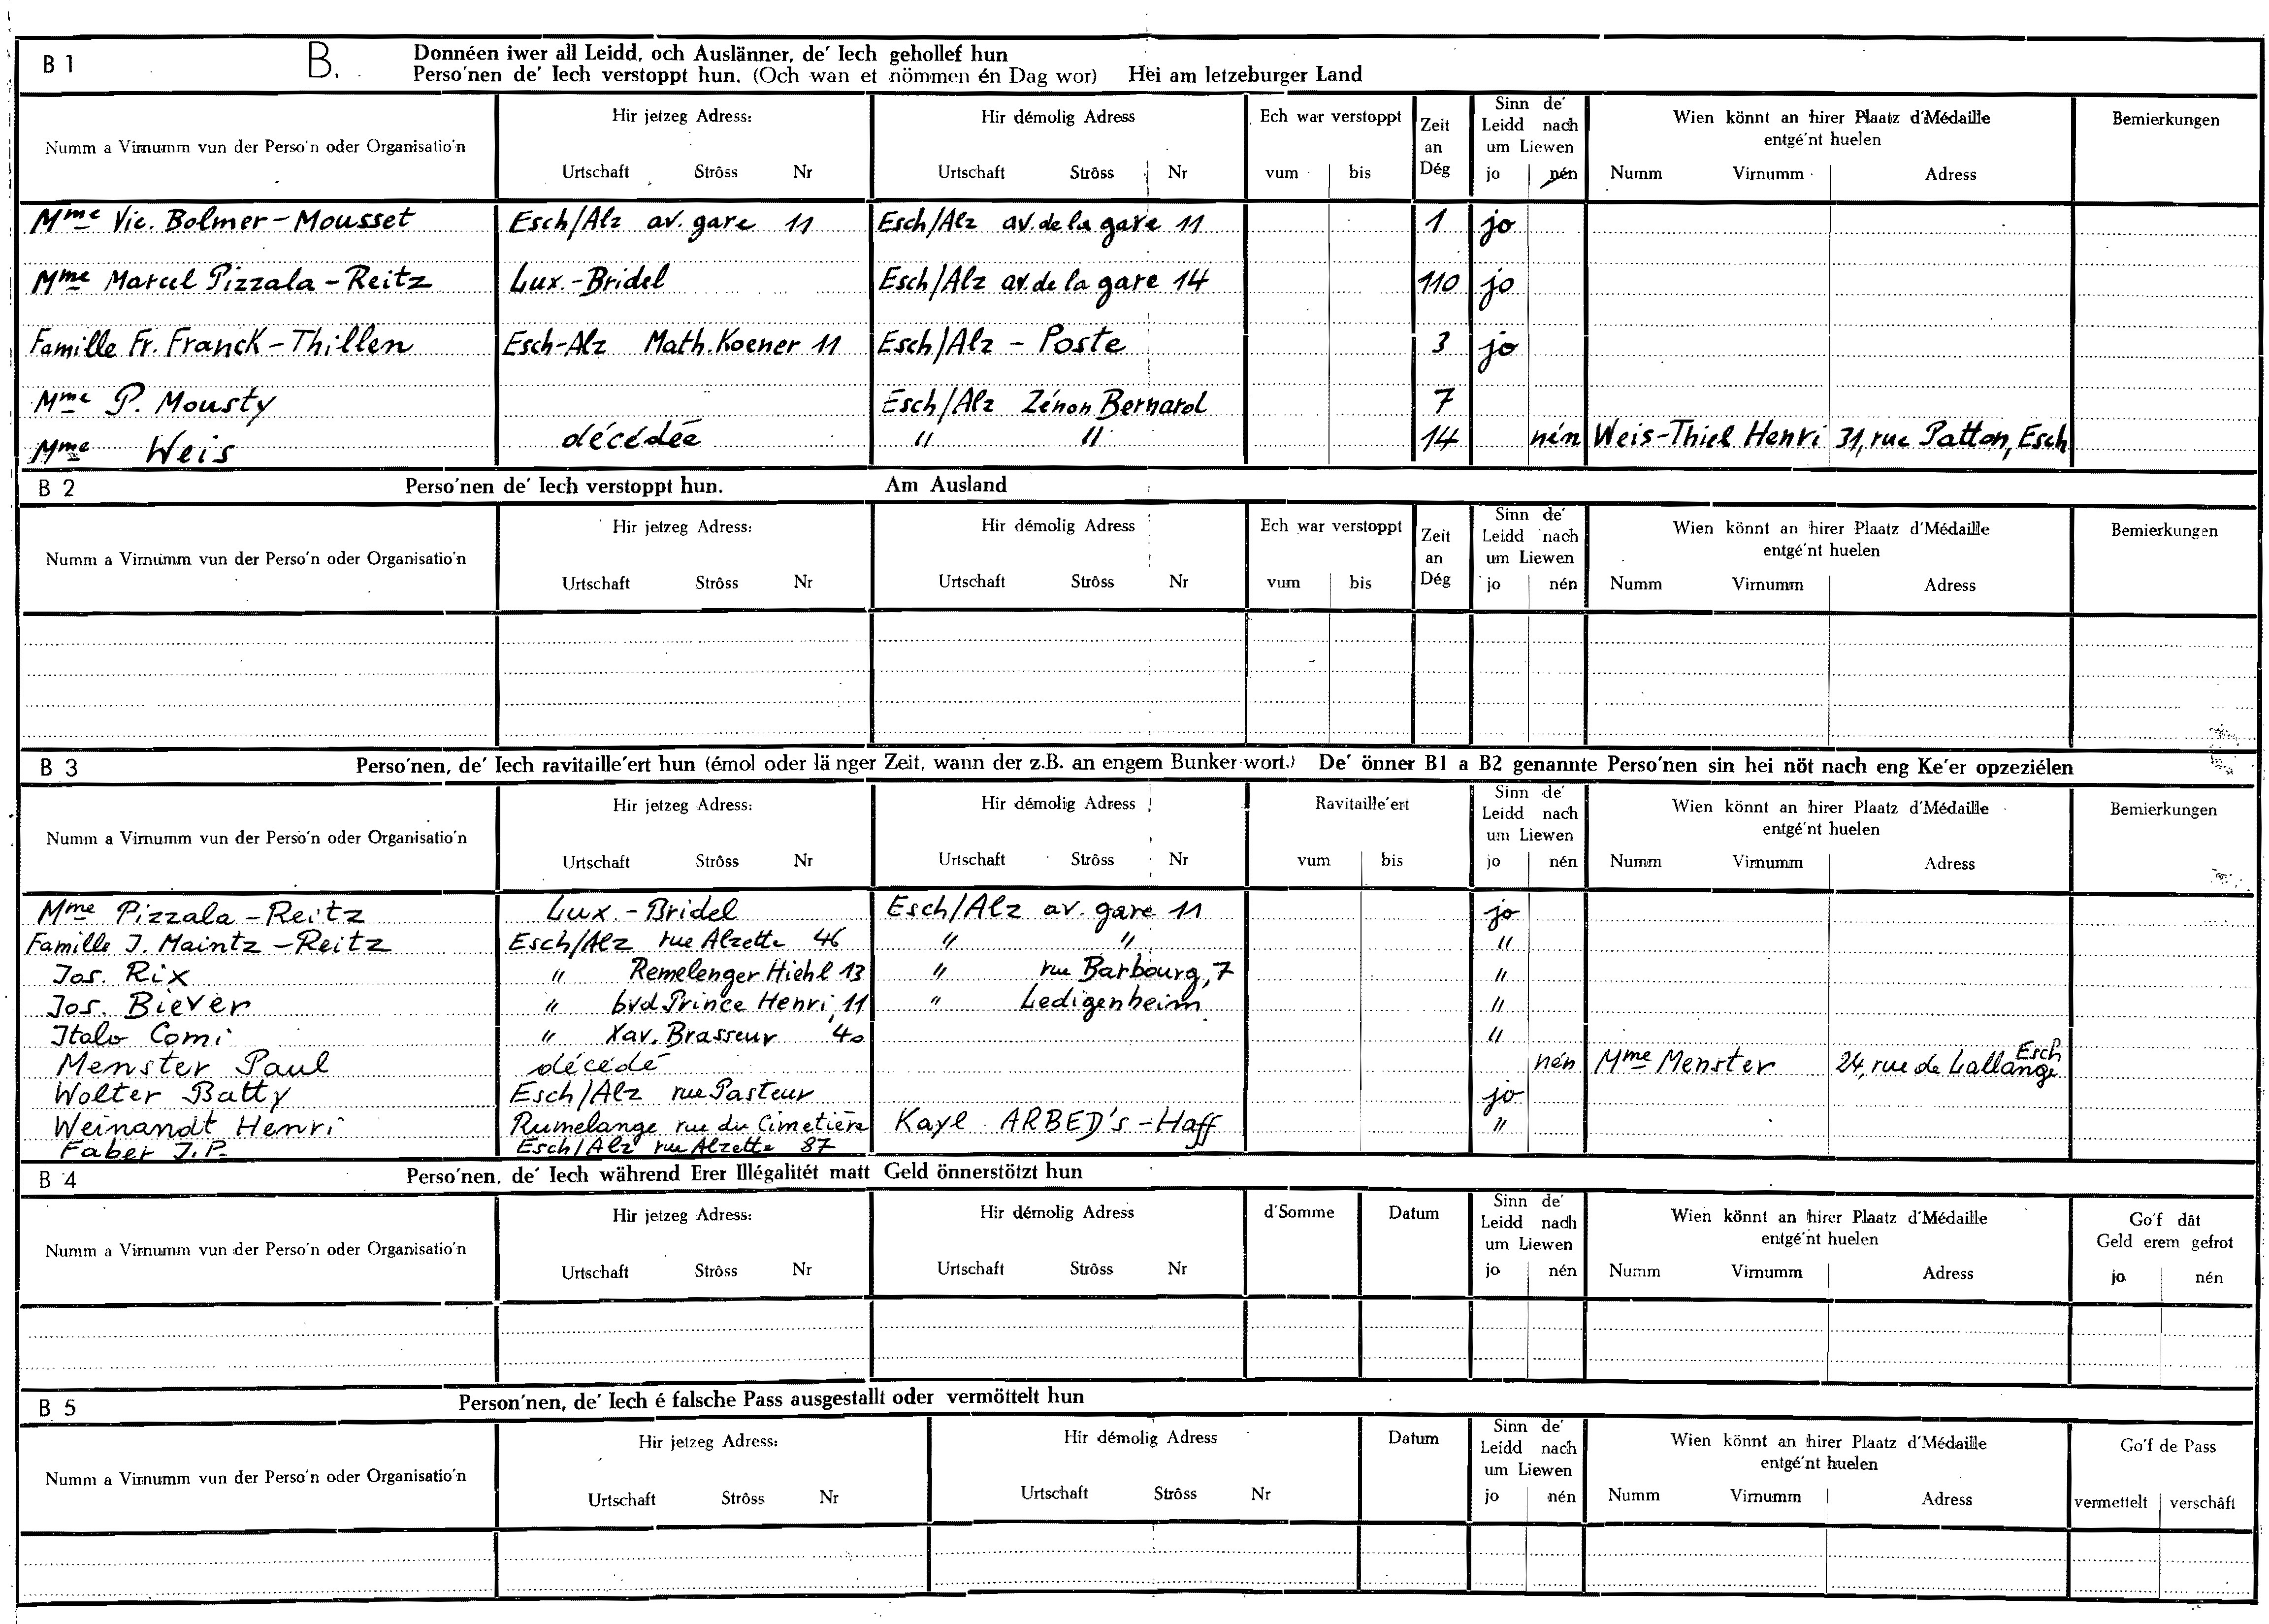 B 1 B. Donnéen iwer all Leidd, och Auslänner, de' Iech gehollef hun
Perso'nen de' Iech verstoppt hun. (Och wan et nömmen én Dag wor) Hei am letzeburger Land
Numm a Virnumm vun der Perso'n oder Organisatio'n
Hir jetzeg Adress:
Urtschaft Strôss Nr
Hir démolig Adress
Urtschaft Strôss Nr
Ech war verstoppt
vum bis
Zeit
an
Dég
Sinn de'
Leidd nach
um Liewen
jo nén
Wien könnt an hirer Plaatz d'Médaille
entgé'nt huelen
Numm Virnumm Adress
Bemierkungen
Mme Vic. Bolmer-Mousset Esch/Alz av. gare 11 Esch/Alz av. de la gare 11 1 jo
Mme Marcel Pizzala-Reitz Lux.-Bridel Esch/Alz av. de la gare 14 110 jo
Famille Fr. Franck-Thillen Esch-Alz Math. Koener 11 Esch/Alz - Poste 3 jo
Mme P. Mousty Esch/Alz Zénon Bernard 7
Mme Weis décédée " " 14 nén Weis-Thiel Henri 31, rue Patton, Esch
B 2 Perso'nen de' Iech verstoppt hun. Am Ausland
Numm a Virnumm vun der Perso'n oder Organisatio'n
Hir jetzeg Adress:
Urtschaft Strôss Nr
Hir démolig Adress
Urtschaft Strôss Nr
Ech war verstoppt
vum bis
Zeit
an
Dég
Sinn de'
Leidd nach
um Liewen
jo nén
Wien könnt an hirer Plaatz d'Médaille
entgé'nt huelen
Numm Virnumm Adress
Bemierkungen
B 3 Perso'nen, de' Iech ravitaille'ert hun (émol oder lä nger Zeit, wann der z.B. an engem Bunker wort.) De' önner B1 a B2 genannte Perso'nen sin hei nöt nach eng Ke'er opzeziélen
Numm a Virnumm vun der Perso'n oder Organisatio'n
Hir jetzeg Adress:
Urtschaft Strôss Nr
Hir démolig Adress
Urtschaft Strôss Nr
Ravitaille'ert
vum bis
Sinn de'
Leidd nach
um Liewen
jo nén
Wien könnt an hirer Plaatz d'Médaille
entgé'nt huelen
Numm Virnumm Adress
Bemierkungen
Mme Pizzala-Reitz Lux.-Bridel Esch/Alz av. gare 11 jo
Famille J. Maintz-Reitz Esch/Alz rue Alzette 46 " " "
Jos. Rix " Remelenger Hiehl 13 " rue Barbourg, 7 "
Jos. Biever " bvd Prince Henri, 11 " Ledigenheim "
Italo Comi " Xav. Brasseur 40 "
Menster Paul décédé nén Mme Menster 24, rue de Lallange Esch
Wolter Batty Esch/Alz rue Pasteur jo
Weinandt Henri Rumelange rue du Cimetière Kayl ARBED's-Haff "
Faber J.P. Esch/Alz rue Alzette 87
B 4 Perso'nen, de' Iech während Erer Illégalitét matt Geld önnerstötzt hun
Numm a Virnumm vun der Perso'n oder Organisatio'n
Hir jetzeg Adress:
Urtschaft Strôss Nr
Hir démolig Adress
Urtschaft Strôss Nr
d'Somme
Datum
Sinn de'
Leidd nach
um Liewen
jo nén
Wien könnt an hirer Plaatz d'Médaille
entgé'nt huelen
Numm Virnumm Adress
Go'f dât
Geld erem gefrot
jo nén
B 5 Person'nen, de' Iech é falsche Pass ausgestallt oder vermöttelt hun
Numm a Virnumm vun der Perso'n oder Organisatio'n
Hir jetzeg Adress:
Urtschaft Strôss Nr
Hir démolig Adress
Urtschaft Strôss Nr
Datum
Sinn de'
Leidd nach
um Liewen
jo nén
Wien könnt an hirer Plaatz d'Médaille
entgé'nt huelen
Numm Virnumm Adress
Go'f de Pass
vermettelt verschâft